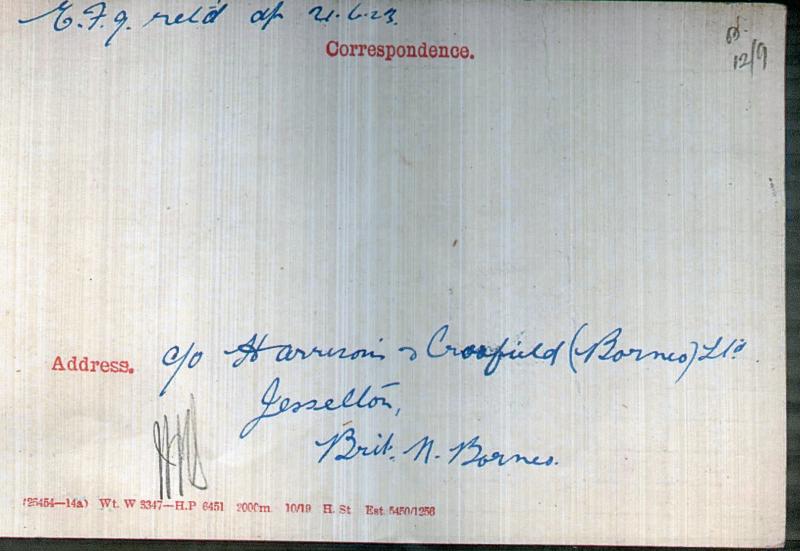 E.F.9. retd df 21.6.23.
Correspondence.
12/9
Address. c/o Harrisons & Crosfield (Borneo) Ltd
Jesselton,
Brit. N. Borneo.
(25454—14a) Wt. W 3347—H.P 6451 2000m 10/19 H. St Est. 5450/1256